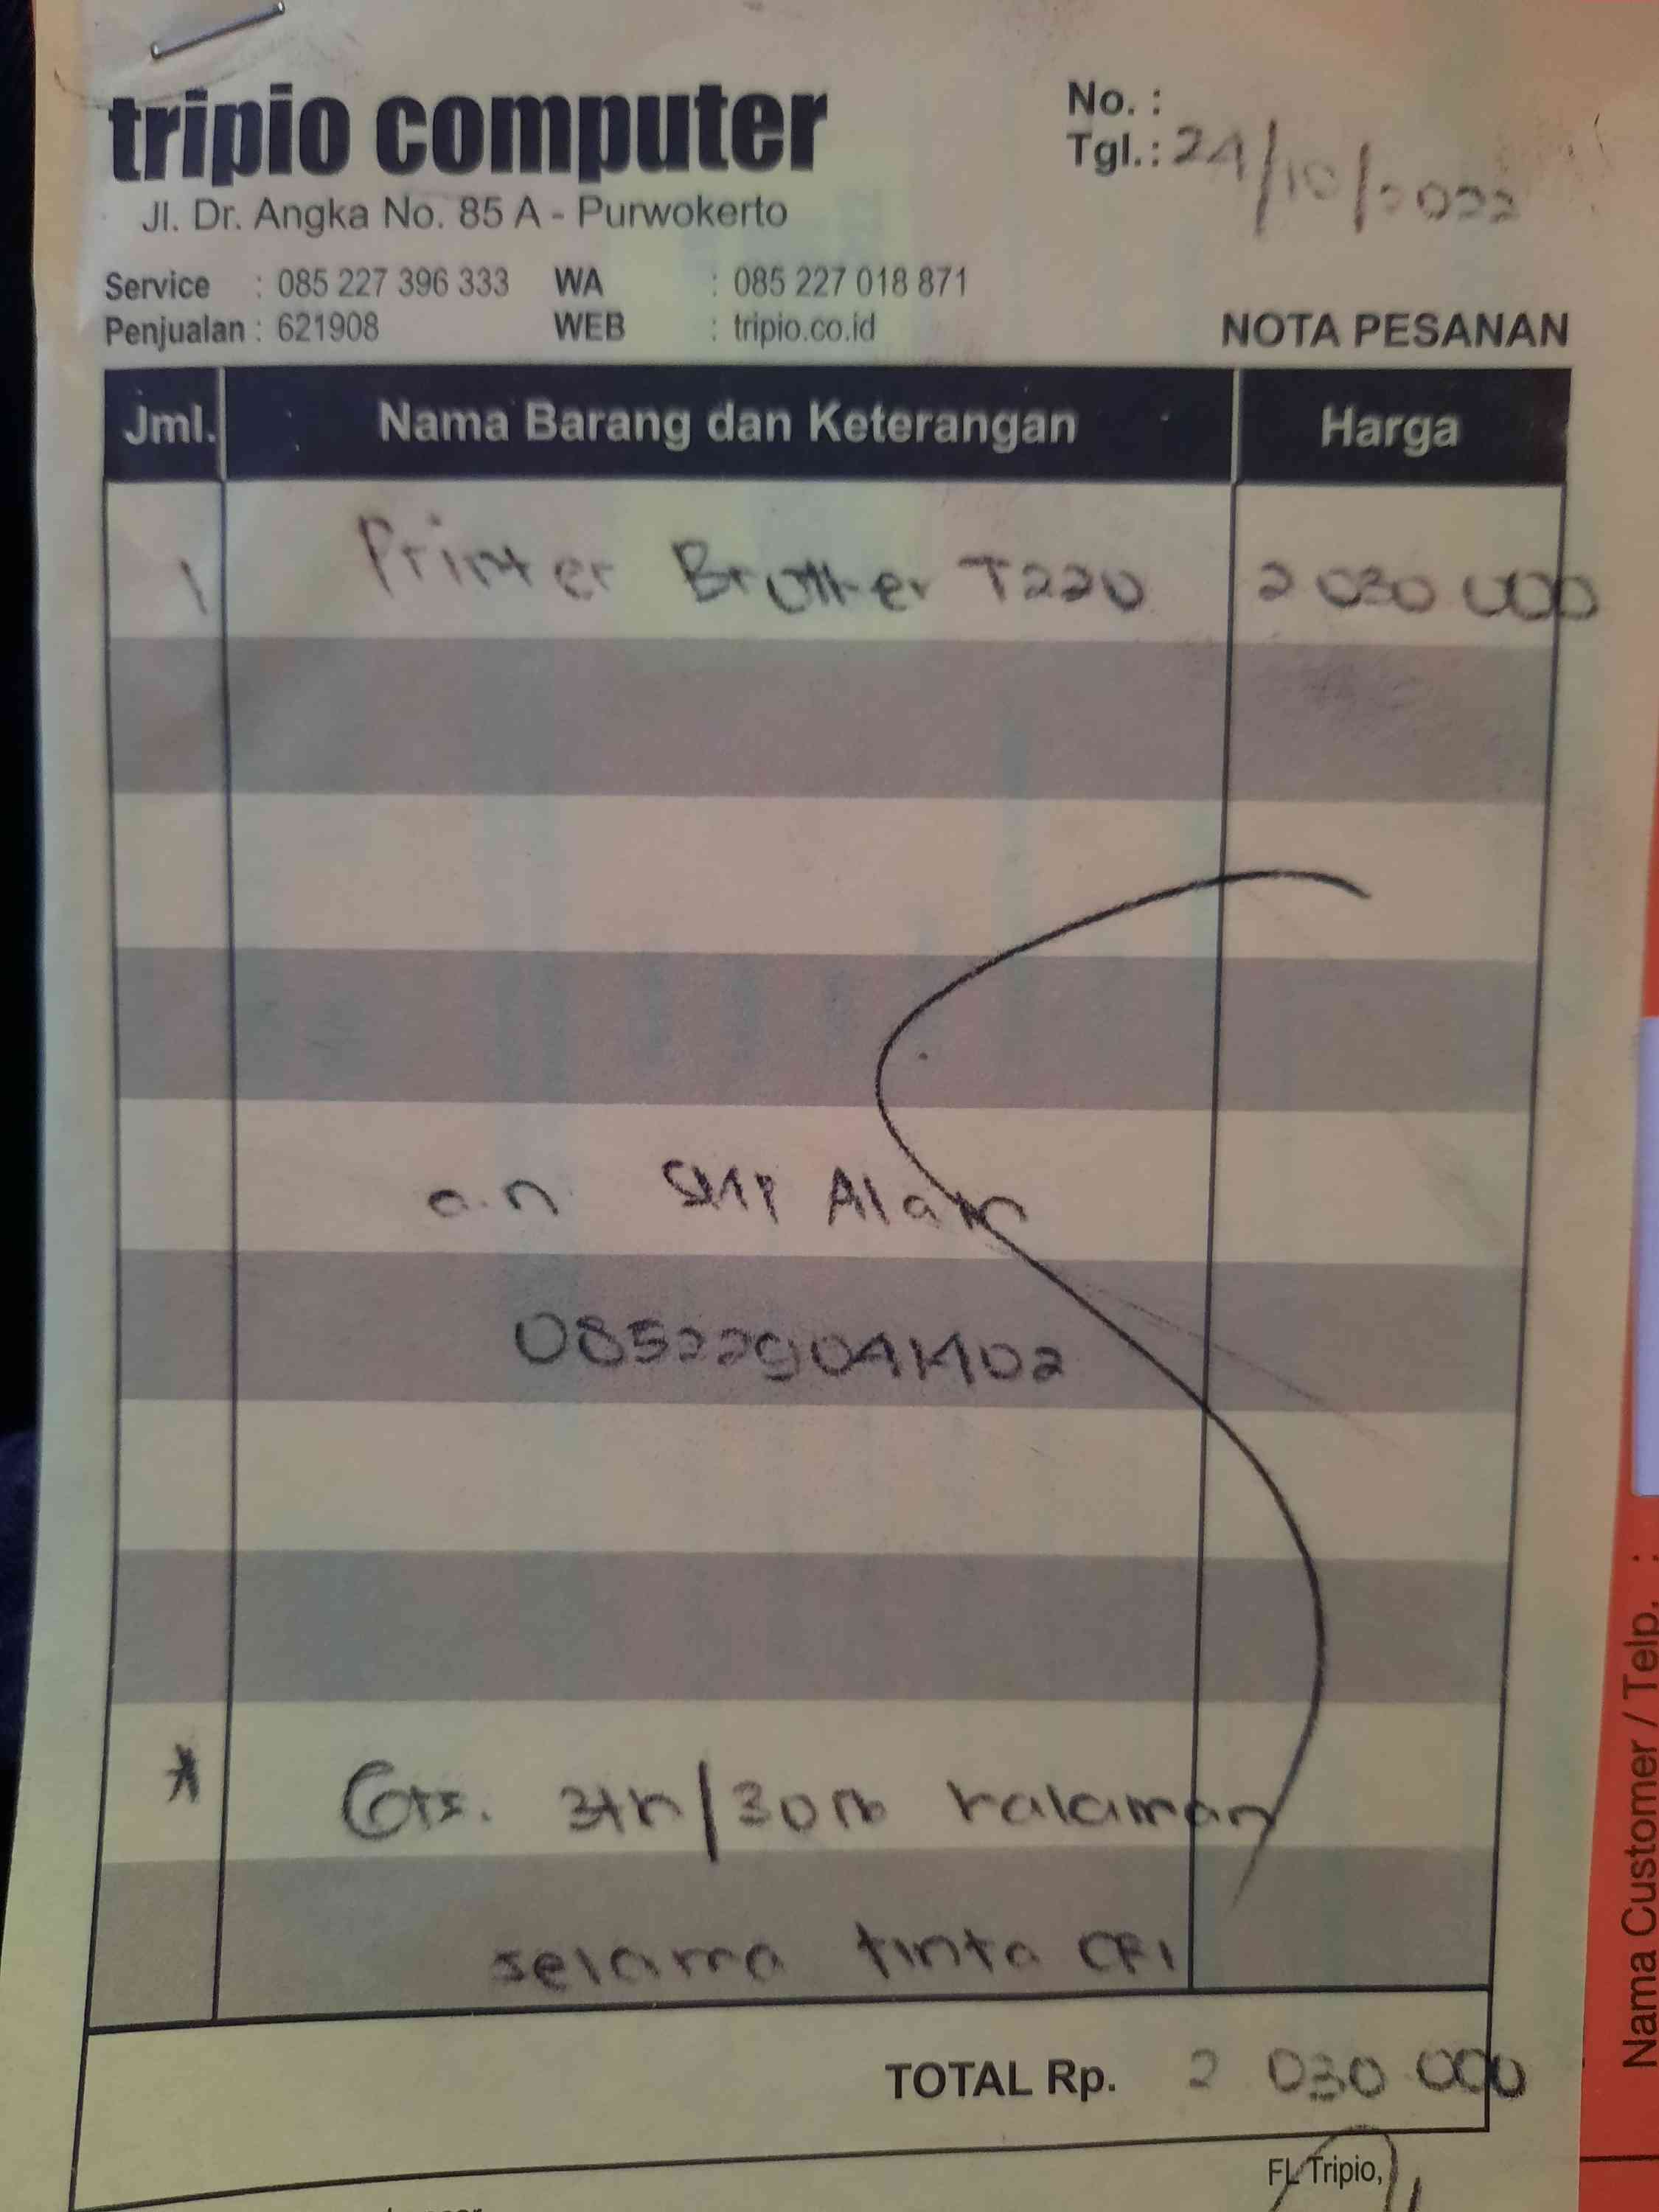 tripio computer
Jl. Dr. Angka No. 85 A - Purwokerto
No. :
Tgl. : 24/10/2022
Service : 085 227 396 333 WA : 085 227 018 871
Penjualan : 621908 WEB : tripio.co.id
NOTA PESANAN
Jml. Nama Barang dan Keterangan Harga
1 Printer Brother T220 2 030 000
a.n SMP Alam
085229041402
* Grs. 3th/30rb halaman
selama tinta ORI
TOTAL Rp. 2 030 000
FL Tripio,
Nama Customer / Telp. :